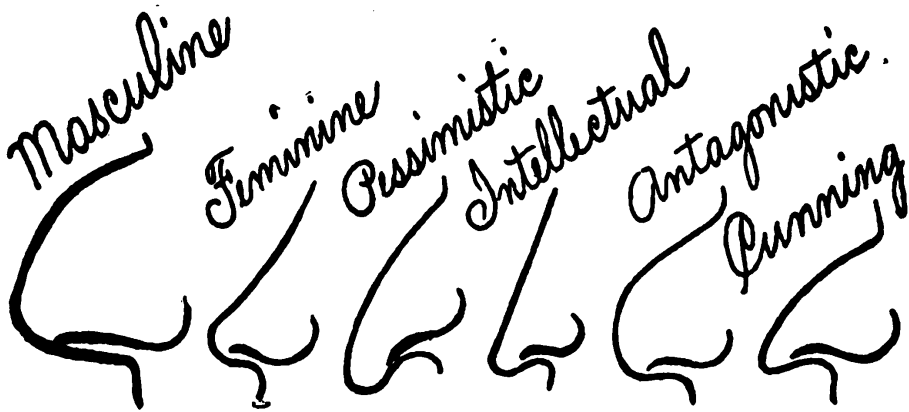 Masculine
Feminine
Pessimistic
Intellectual
Antagonistic.
Cunning